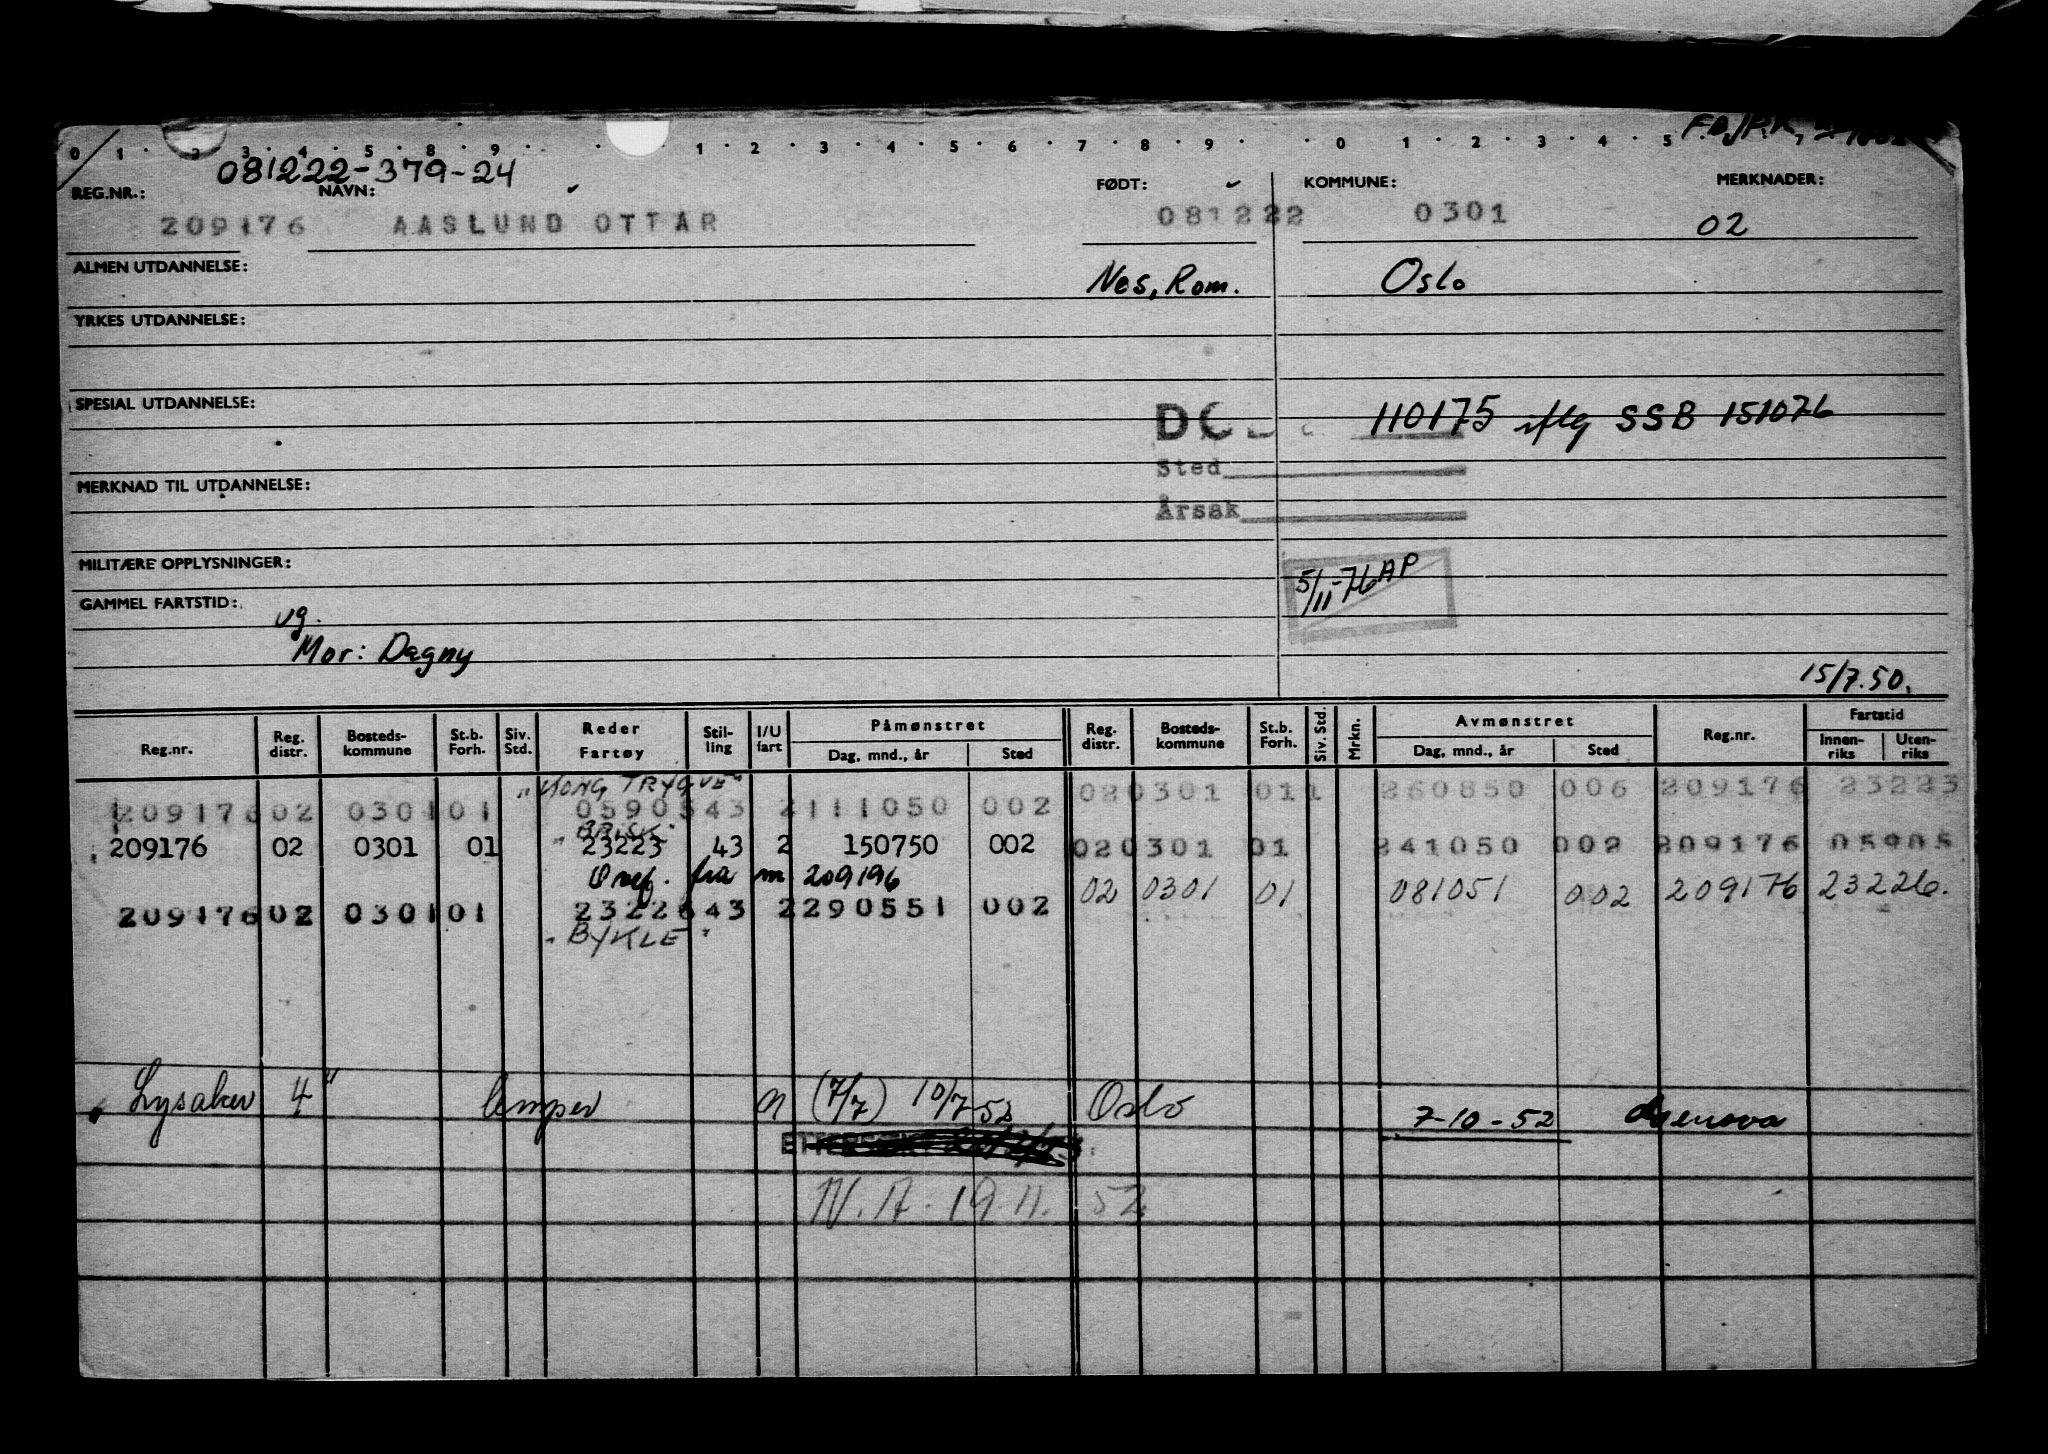 0 1 2 3 4 5 8 9 1 2 3 4 5 6 7 8 9 0 1 2 3 4 5
081222-379-24
REG.NR.: NAVN: FØDT: KOMMUNE: MERKNADER:
209176 AASLUND OTTAR 081222 0301 02
ALMEN UTDANNELSE: Nes, Rom. Oslo
YRKES UTDANNELSE:
SPESIAL UTDANNELSE: 110175 iflg SSB 151076
Sted
MERKNAD TIL UTDANNELSE:
Årsak
MILITÆRE OPPLYSNINGER: 5/11-76 AP
GAMMEL FARTSTID: vg.
Mor: Dagny
15/7.50.
Reg.nr. Reg. distr. Bosteds-kommune St.b. Forh. Siv. Std. Reder Fartøy Stil-ling I/U fart Påmønstret Dag, mnd., år Sted Reg. distr. Bosteds-kommune St.b. Forh. Siv. Std. Mrkn. Avmønstret Dag, mnd., år Sted Reg.nr. Fartstid Innen-riks Uten-riks
020301 011 260850 006 209176 23223
209176 02 0301 01 05905 43 2 111050 002
"BRISK"
209176 02 0301 01 23223 43 2 150750 002 020301 01 241050 002 209176 05905
fra m 209196
02 0301 01 081051 002 209176 23226.
209176 02 0301 01 23226 43 2 290551 002
"BYKLE"
Lysaker 4" lemper (7/7) 10/7-52 Oslo 7-10-52 Genova
N.A. 19.11.52